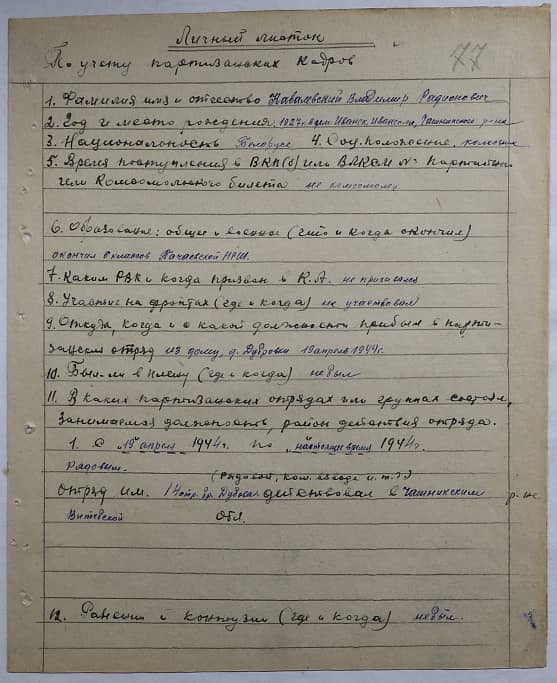 Личный листок
По учету партизанских Кадров
77
1. Фамилия имя и отчество Владимир Радионович
2. Год и место рождения 1927г. в дер. Иванск, Чашникского р-на
3. Национальность Белорус 4. Соц. положение, колхозник
5. Время поступления в ВКП(б) или ВЛКСМ № партий или
Комсомольского билета не комсомолец
6. Образование: общее и военное (что и когда окончил)
окончил 6 классов НСШ.
7. Каким РВК и когда призван в К.А. не призывался
8. Участие на фронтах (где и когда) не участвовал
9. Откуда, когда и с какой должности прибыл в парти-
занский отряд из дому, д. Дубровки 19 апреля 1944г.
10. Был-ли в плену (где и когда) не был
11. В каких партизанских отрядах или группах состоял,
занимаемая должность, район действия отряда.
1. С "19" апреля 1944г. по "настоящее время 1944г.
Рядовым.
(рядовой, ком. взвода и т.д.)
отряд им. 14 отр. бр. Дубова действовал в Чашникским р-не
Витебской обл.
12. Ранения и контузии (где и когда) не был.